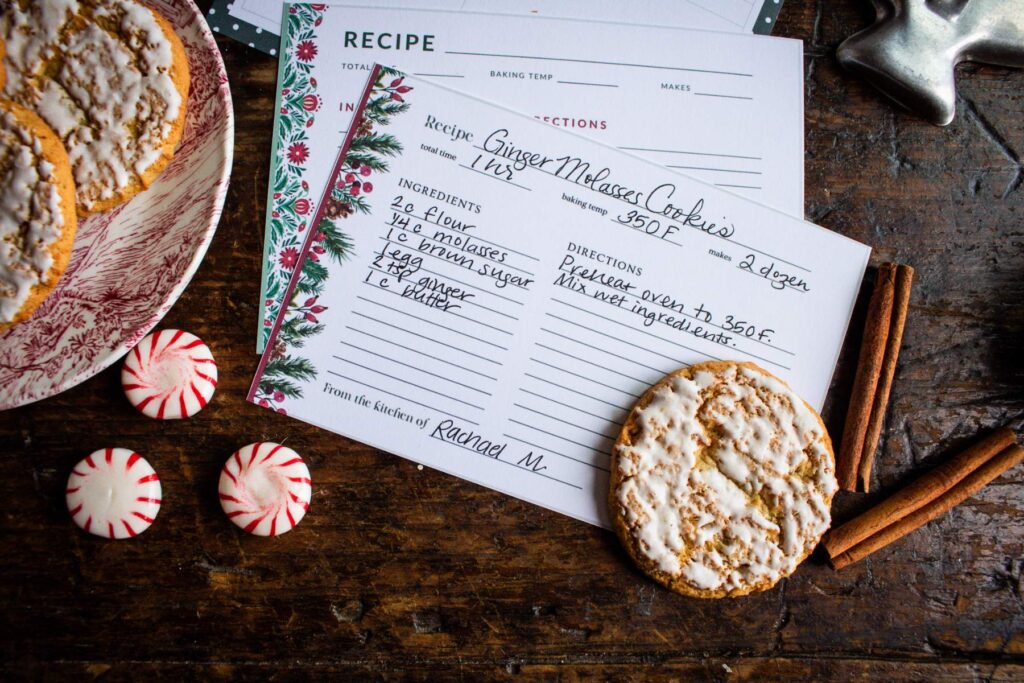 RECIPE
BAKING TEMP MAKES
Recipe Ginger Molasses Cookies
total time 1 hr baking temp 350F makes 2 dozen
INGREDIENTS
2c flour
1/4 c molasses
1 c brown sugar
1 egg
2 tsp ginger
1 c butter
DIRECTIONS
Preheat oven to 350F.
Mix wet ingredients.
From the kitchen of Rachael M.